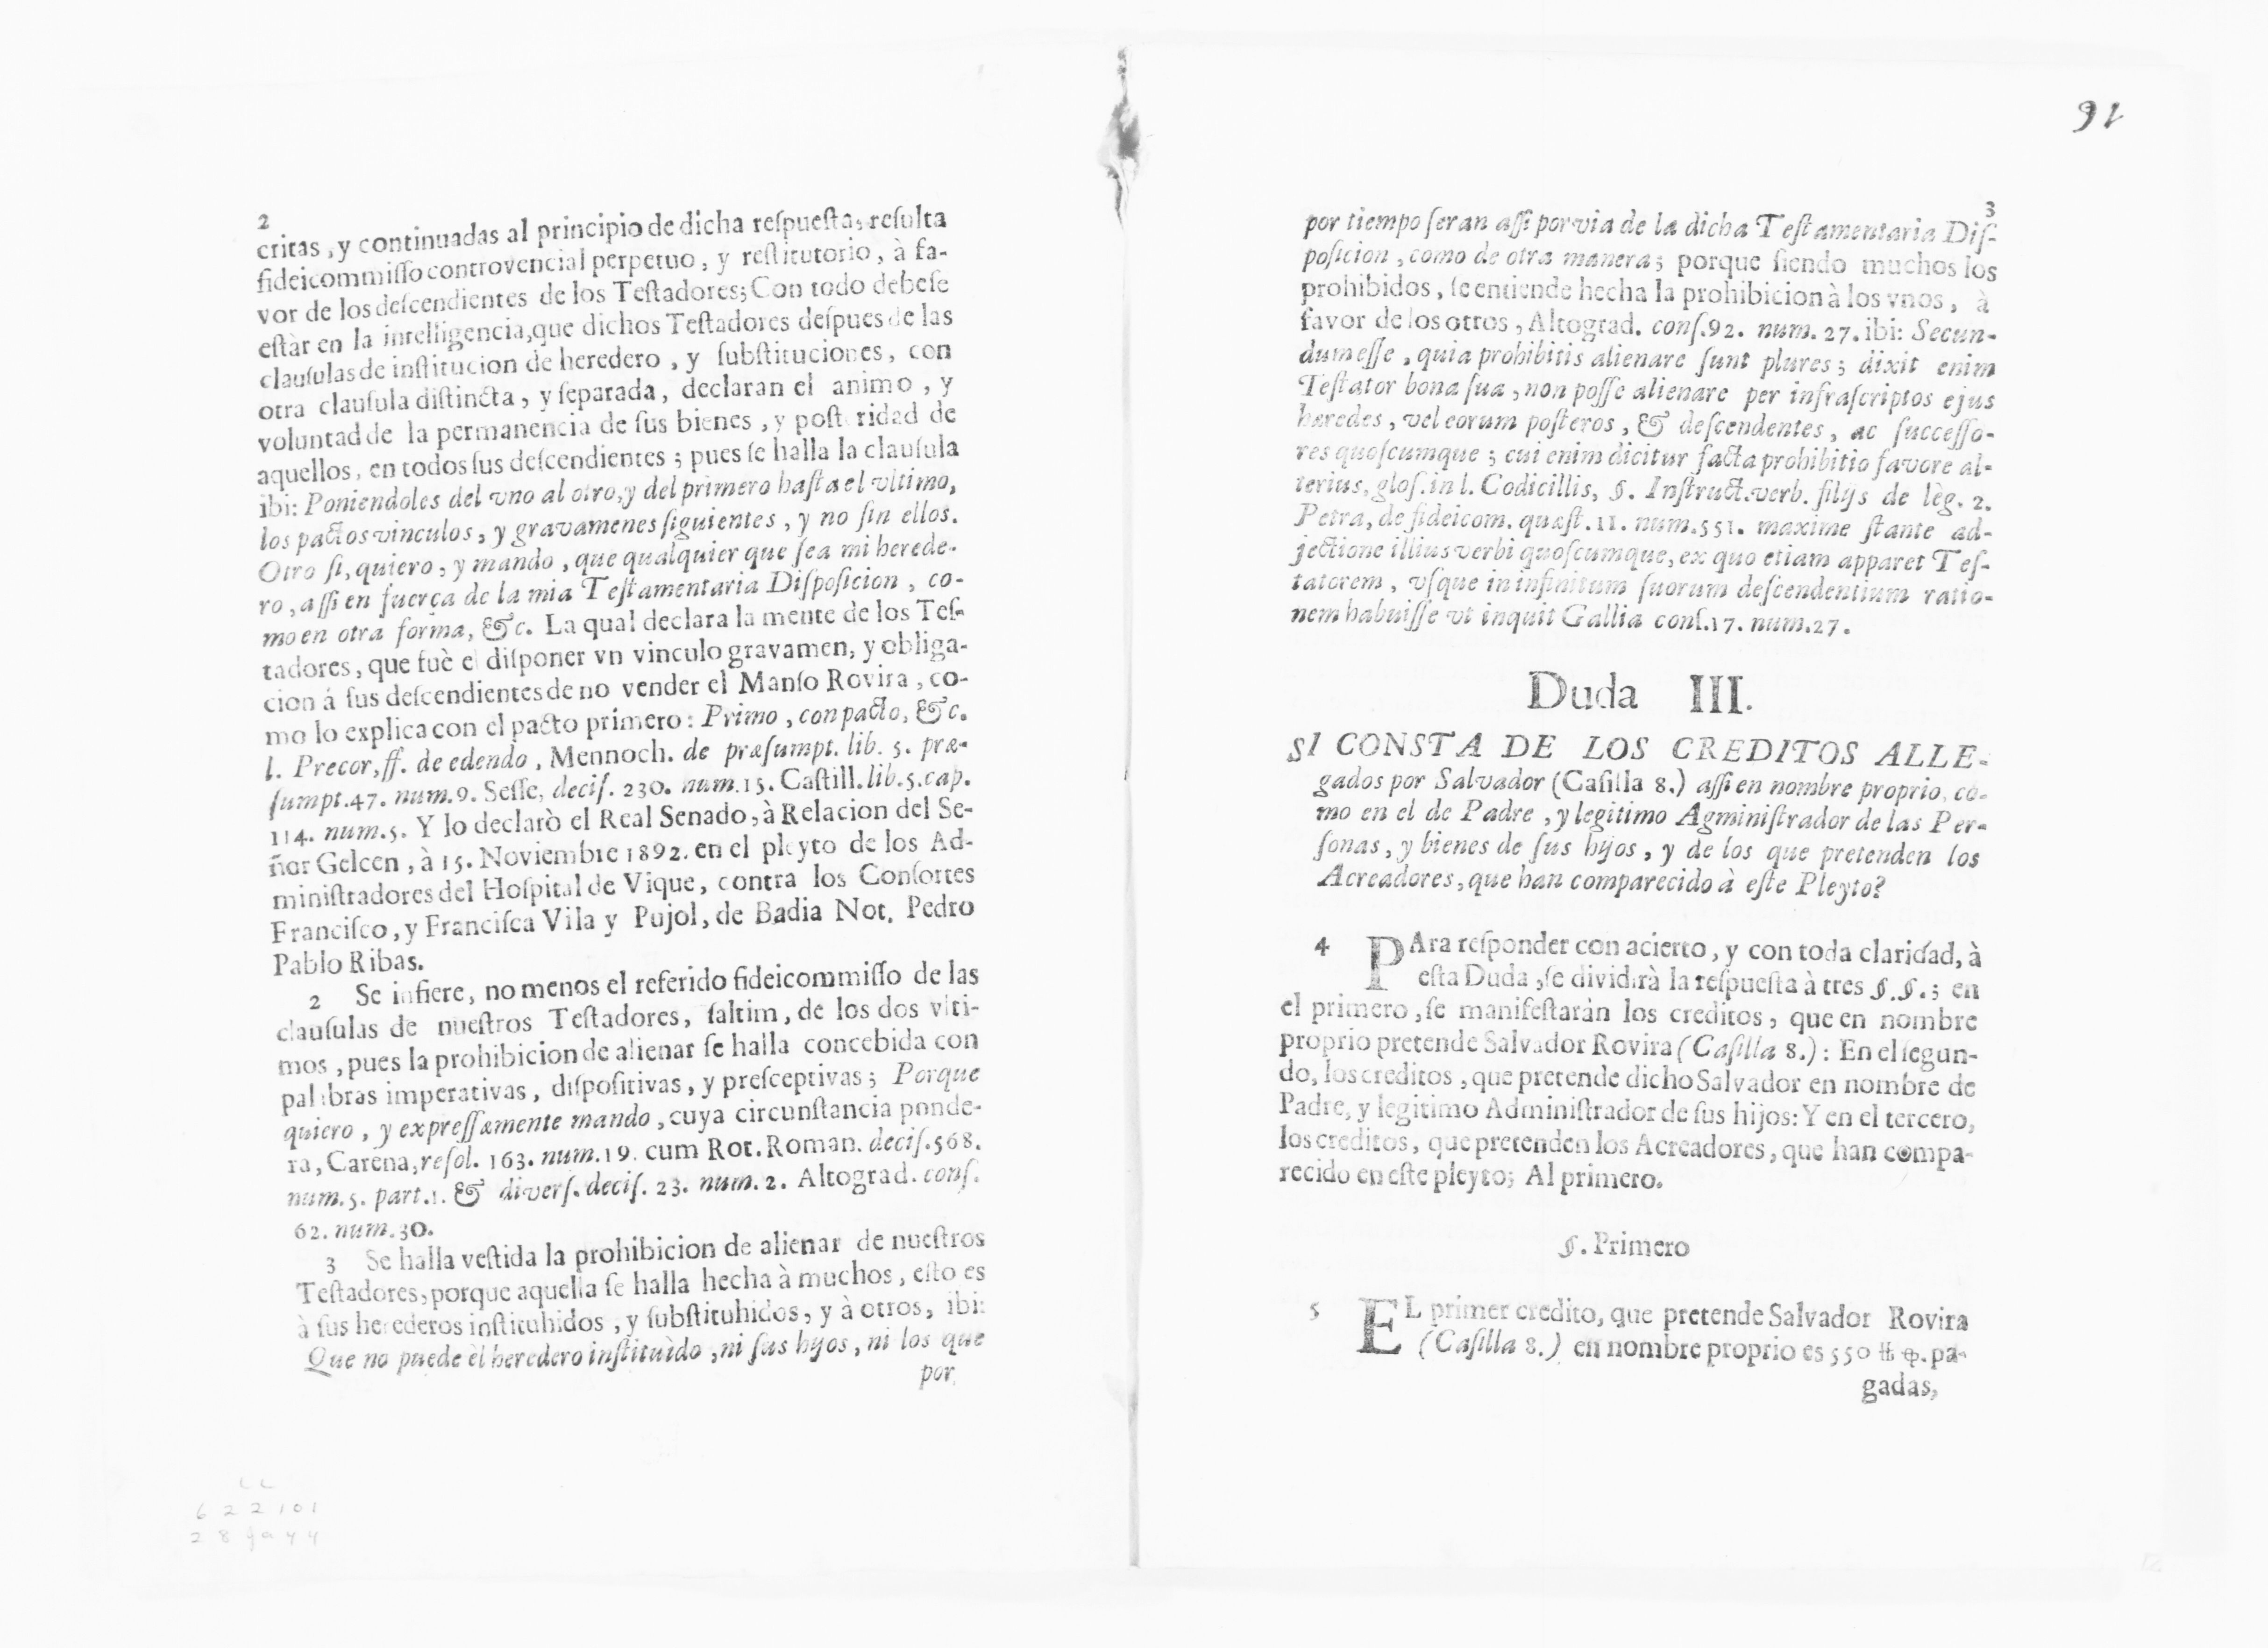 2
critas, y continuadas al principio de dicha reſpueſta, reſulta
fideicommiſſo controvencial perpetuo, y reſtitutorio, à fa-
vor de los deſcendientes de los Teſtadores; Con todo debeſe
eſtàr en la intelligencia, que dichos Teſtadores deſpues de las
clauſulas de inſtitucion de heredero, y ſubſtituciones, con
otra clauſula diſtincta, y ſeparada, declaran el animo, y
voluntad de la permanencia de ſus bienes, y poſteridad de
aquellos, en todos ſus deſcendientes; pues ſe halla la clauſula
ibi: Poniendoles del vno al otro, y del primero haſta el vltimo,
los pactos vinculos, y gravamenes ſiguientes, y no ſin ellos.
Otro ſi, quiero, y mando, que qualquier que ſea mi herede-
ro, aſſi en fuerça de la mia Teſtamentaria Diſpoſicion, co-
mo en otra forma, &c. La qual declara la mente de los Teſ-
tadores, que fuè el diſponer vn vinculo gravamen, y obliga-
cion á ſus deſcendientes de no vender el Manſo Rovira, co-
mo lo explica con el pacto primero: Primo, con pacto, &c.
l. Precor, ff. de edendo, Mennoch. de præſumpt. lib. 5. præ-
ſumpt. 47. num. 9. Seſſe, deciſ. 230. num. 15. Caſtill. lib. 5. cap.
114. num. 5. Y lo declarò el Real Senado, à Relacion del Se-
ñor Gelcen, à 15. Noviembre 1892. en el pleyto de los Ad-
miniſtradores del Hoſpital de Vique, contra los Conſortes
Franciſco, y Franciſca Vila y Pujol, de Badia Not. Pedro
Pablo Ribas.
2 Se infiere, no menos el referido fideicommiſſo de las
clauſulas de nueſtros Teſtadores, ſaltim, de los dos vlti-
mos, pues la prohibicion de alienar ſe halla concebida con
palabras imperativas, diſpoſitivas, y preſceptivas; Porque
quiero, y expreſſamente mando, cuya circunſtancia ponde-
ra, Carena, reſol. 163. num. 19. cum Rot. Roman. deciſ. 568.
num. 5. part. 1. & diverſ. deciſ. 23. num. 2. Altograd. conſ.
62. num. 30.
3 Se halla veſtida la prohibicion de alienar de nueſtros
Teſtadores, porque aquella ſe halla hecha à muchos, eſto es
à ſus herederos inſtituhidos, y ſubſtituhidos, y à otros, ibi:
Que no puede èl heredero inſtituìdo, ni ſus hijos, ni los que
por
LL
622101
91
3
por tiempo ſeran aſſi por via de la dicha Teſtamentaria Diſ-
poſicion, como de otra manera; porque ſiendo muchos los
prohibidos, ſe entiende hecha la prohibicion à los vnos, à
favor de los otros, Altograd. conſ. 92. num. 27. ibi: Secun-
dum eſſe, quia prohibitis alienare ſunt plures; dixit enim
Teſtator bona ſua, non poſſe alienare per infraſcriptos ejus
heredes, vel eorum poſteros, & deſcendentes, ac ſucceſſo-
res quoſcumque; cui enim dicitur facta prohibitio favore al-
terius, gloſ. in l. Codicillis, §. Inſtruct. verb. filijs de lèg. 2.
Petra, de fideicom. quæſt. 11. num. 551. maxime ſtante ad-
jectione illius verbi quoſcumque, ex quo etiam apparet Teſ-
tatorem, vſque in infinitum ſuorum deſcendentium ratio-
nem habuiſſe vt inquit Gallia conſ. 17. num. 27.
Duda III.
SI CONSTA DE LOS CREDITOS ALLE-
gados por Salvador (Caſilla 8.) aſſi en nombre proprio, co-
mo en el de Padre, y legitimo Agminiſtrador de las Per-
ſonas, y bienes de ſus hijos, y de los que pretenden los
Acreadores, que han comparecido à eſte Pleyto?
4 PAra reſponder con acierto, y con toda claridad, à
eſta Duda, ſe dividirà la reſpueſta à tres §. §.; en
el primero, ſe manifeſtaràn los creditos, que en nombre
proprio pretende Salvador Rovira (Caſilla 8.): En el ſegun-
do, los creditos, que pretende dicho Salvador en nombre de
Padre, y legitimo Adminiſtrador de ſus hijos: Y en el tercero,
los creditos, que pretenden los Acreadores, que han compa-
recido en eſte pleyto; Al primero.
§. Primero
5 EL primer credito, que pretende Salvador Rovira
(Caſilla 8.) en nombre proprio es 550 pa-
gadas,